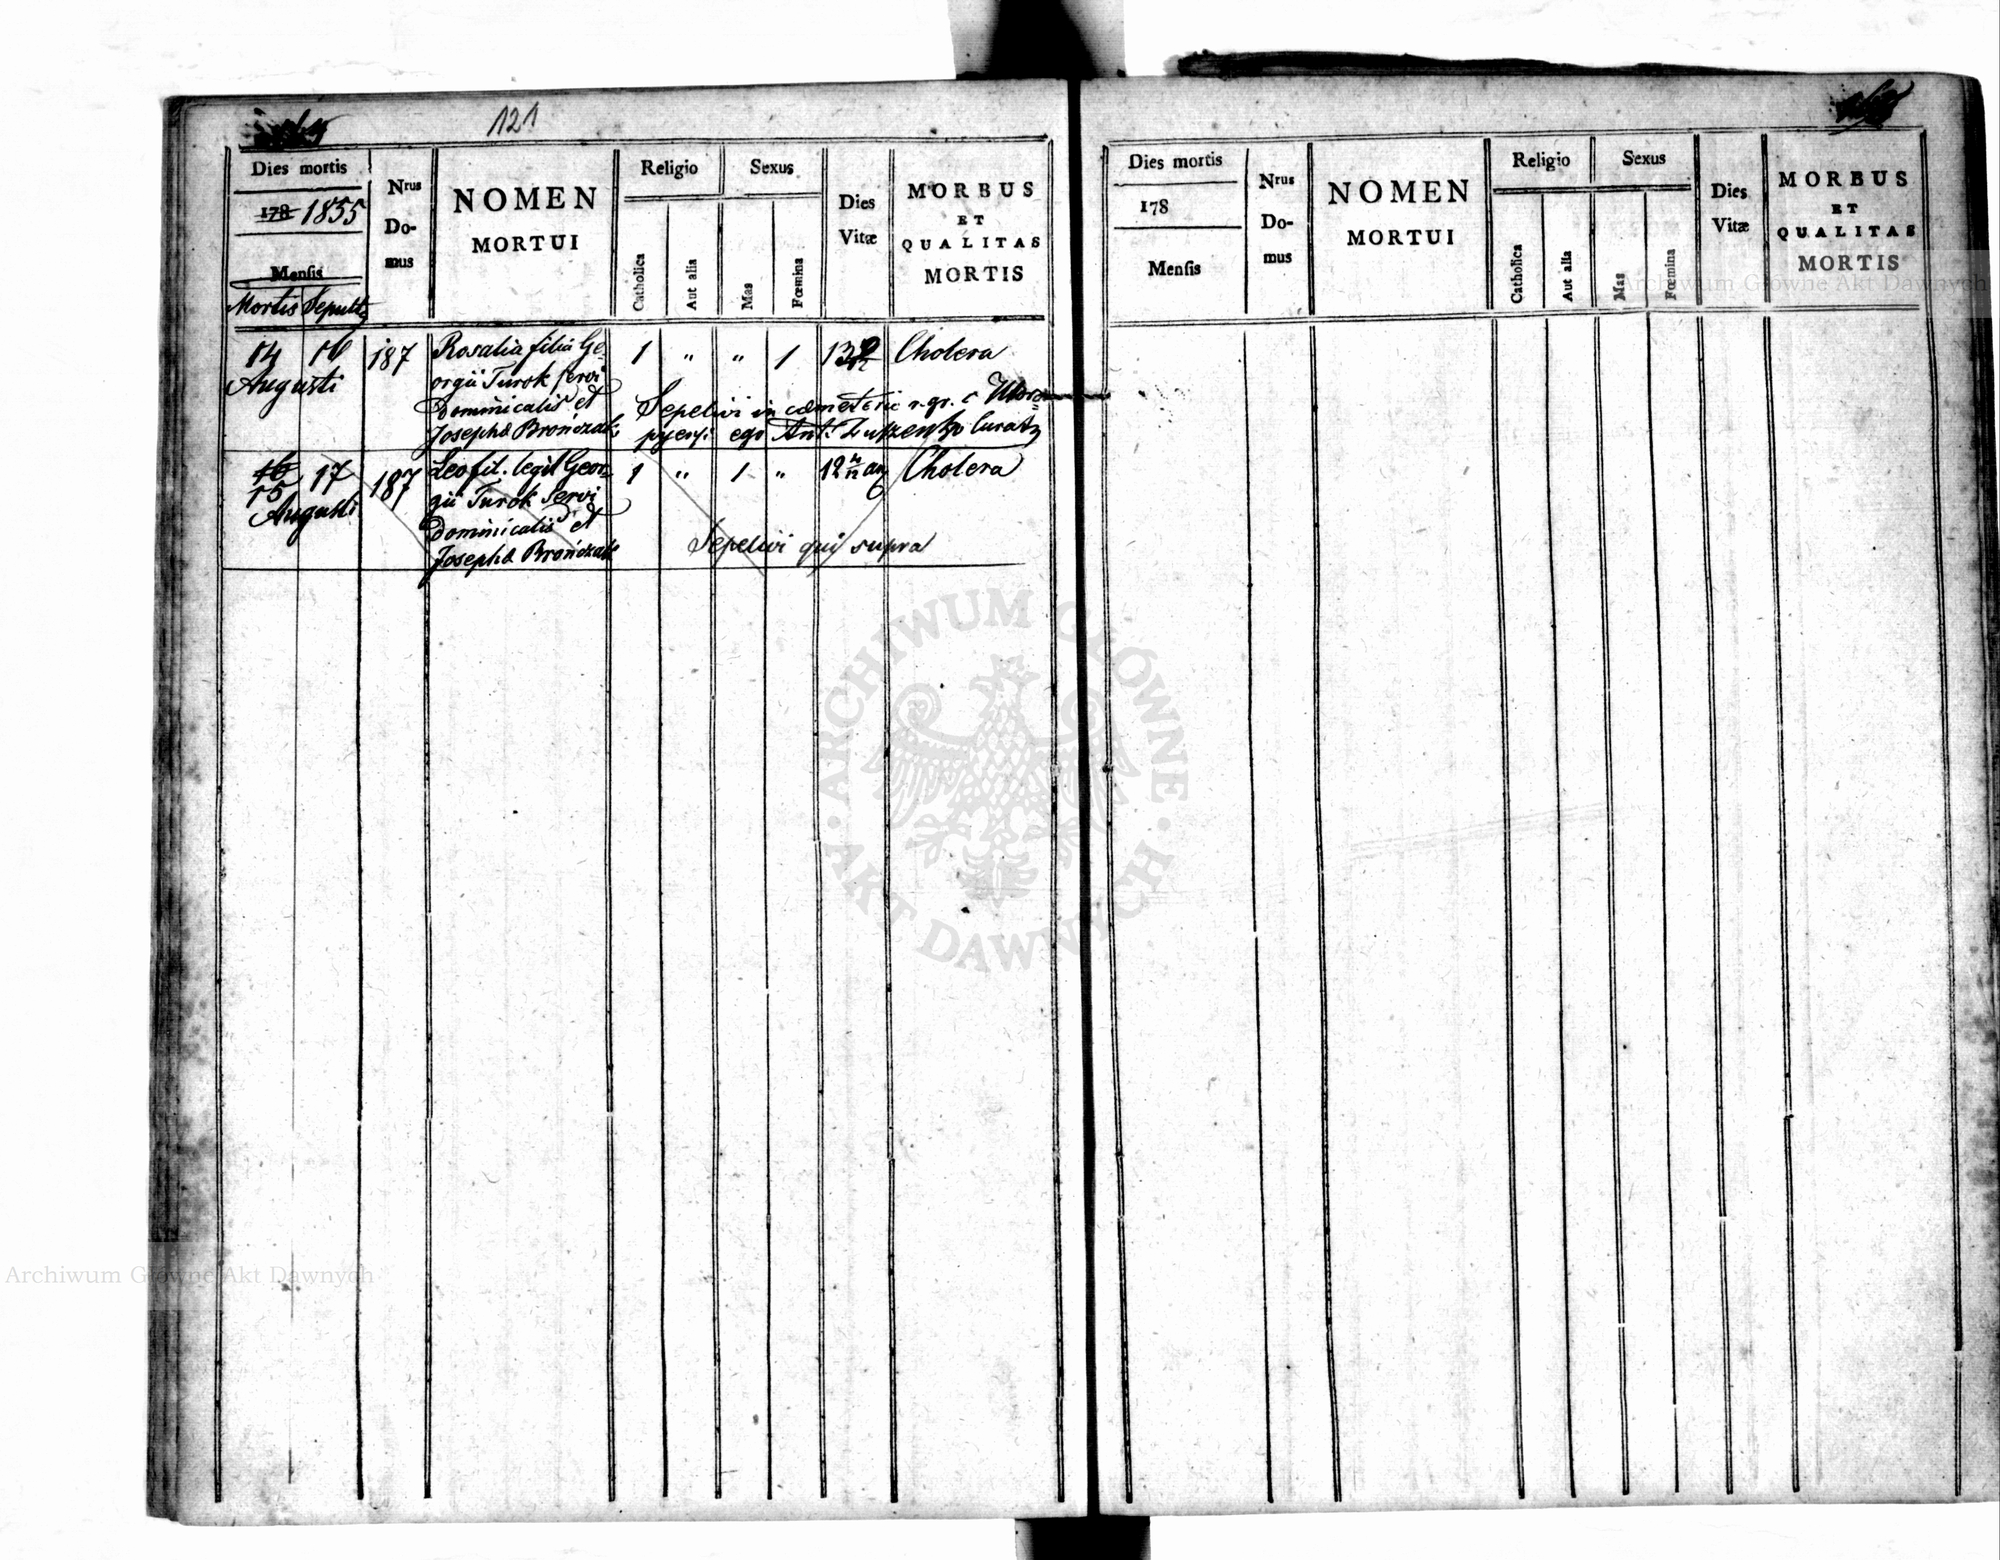 121
Dies mortis
178 1855
Mensis
Mortis Sepult
Nrus
Do-
mus
NOMEN
MORTUI
Religio
Catholica
Aut alia
Sexus
Mas
Fœmina
Dies
Vitæ
MORBUS
ET
QUALITAS
MORTIS
14 16 187 Rosalia filia Ge- 1 " " 1 13 Cholera
Augusti orgii Turok servi
Dominicalis et Sepelivi in cœmeterio r. gr.
Josepha Brończak ego Ant. Curat
16 17 187 Leo fil. legit Geor- 1 " 1 " 12 Cholera
15 gii Turok Servi
Augusti
Dominicalis et
Josepha Brończak Sepelivi qui supra
Dies mortis
178
Mensis
Nrus
Do-
mus
NOMEN
MORTUI
Religio
Catholica
Aut alia
Sexus
Mas
Fœmina
Dies
Vitæ
MORBUS
ET
QUALITAS
MORTIS
Archiwum Główne Akt Dawnych
ARCHIWUM GŁÓWNE
AKT DAWNYCH
Archiwum Główne Akt Dawnych